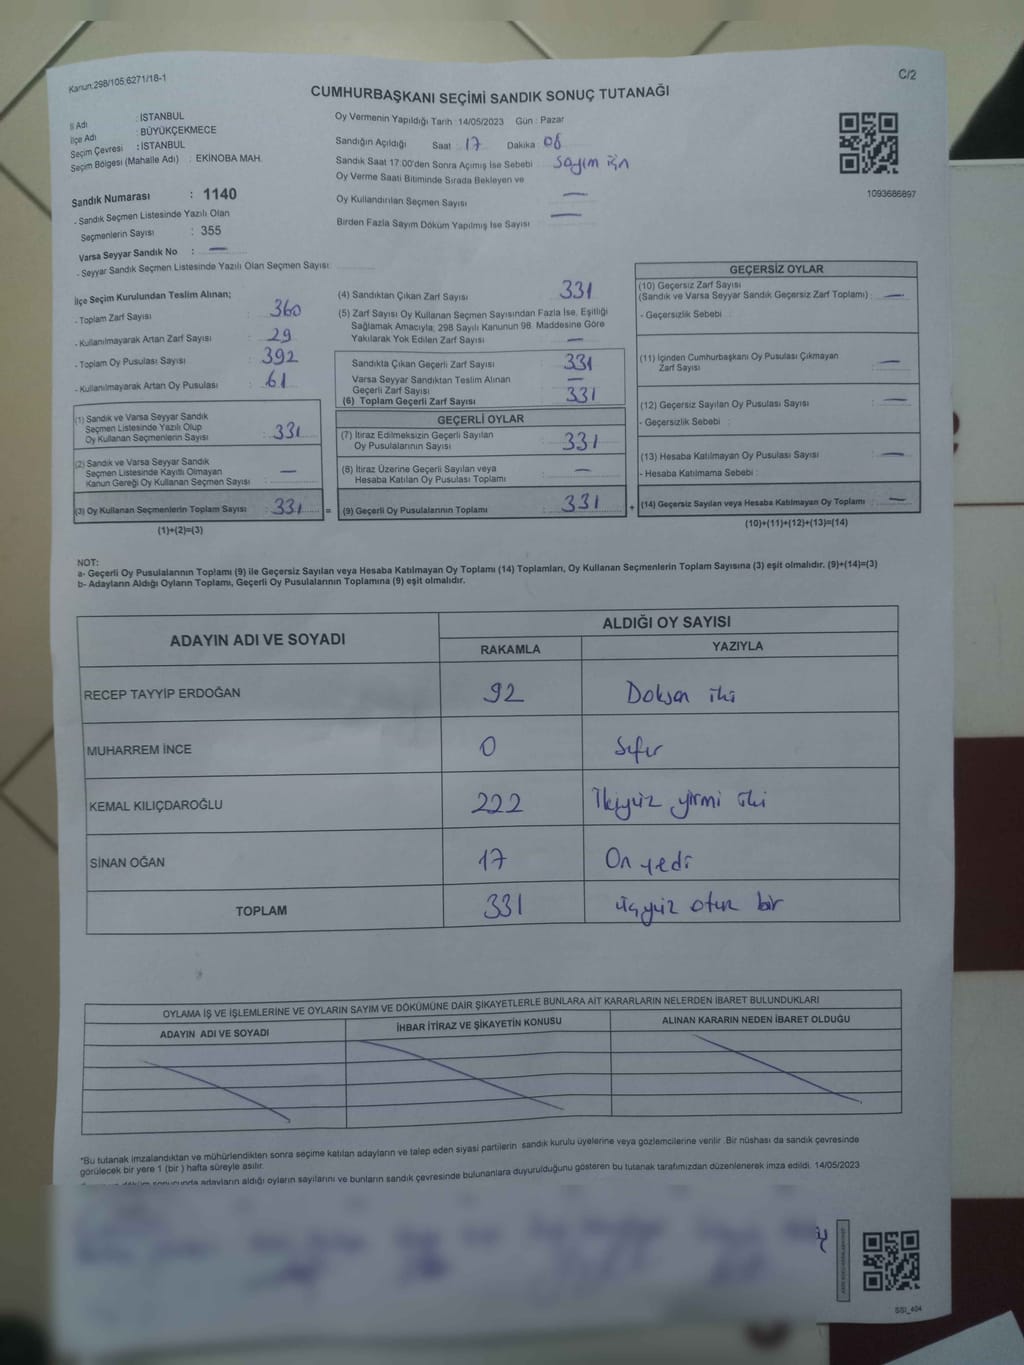 Kanun.298/105,6271/18-1
C/2
CUMHURBAŞKANI SEÇİMİ SANDIK SONUÇ TUTANAĞI
İl Adı : İSTANBUL
İlçe Adı : BÜYÜKÇEKMECE
Seçim Çevresi : İSTANBUL
Seçim Bölgesi (Mahalle Adı) : EKİNOBA MAH.
Sandık Numarası : 1140
- Sandık Seçmen Listesinde Yazılı Olan
Seçmenlerin Sayısı : 355
Varsa Seyyar Sandık No : —
- Seyyar Sandık Seçmen Listesinde Yazılı Olan Seçmen Sayısı:
Oy Vermenin Yapıldığı Tarih :14/05/2023 Gün : Pazar
Sandığın Açıldığı Saat 17 Dakika 08
Sandık Saat 17:00'den Sonra Açılmış İse Sebebi Sayım için
Oy Verme Saati Bitiminde Sırada Bekleyen ve
Oy Kullandırılan Seçmen Sayısı —
Birden Fazla Sayım Döküm Yapılmış İse Sayısı —
1093686897
İlçe Seçim Kurulundan Teslim Alınan;
- Toplam Zarf Sayısı : 360
- Kullanılmayarak Artan Zarf Sayısı : 29
- Toplam Oy Pusulası Sayısı : 392
- Kullanılmayarak Artan Oy Pusulası : 61
(1) Sandık ve Varsa Seyyar Sandık
Seçmen Listesinde Yazılı Olup
Oy Kullanan Seçmenlerin Sayısı : 331
(2) Sandık ve Varsa Seyyar Sandık
Seçmen Listesinde Kayıtlı Olmayan
Kanun Gereği Oy Kullanan Seçmen Sayısı : —
(3) Oy Kullanan Seçmenlerin Toplam Sayısı : 331
(1)+(2)=(3)
(4) Sandıktan Çıkan Zarf Sayısı 331
(5) Zarf Sayısı Oy Kullanan Seçmen Sayısından Fazla İse, Eşitliği
Sağlamak Amacıyla, 298 Sayılı Kanunun 98. Maddesine Göre
Yakılarak Yok Edilen Zarf Sayısı —
Sandıkta Çıkan Geçerli Zarf Sayısı 331
Varsa Seyyar Sandıktan Teslim Alınan
Geçerli Zarf Sayısı —
(6) Toplam Geçerli Zarf Sayısı 331
GEÇERLİ OYLAR
(7) İtiraz Edilmeksizin Geçerli Sayılan
Oy Pusulalarının Sayısı 331
(8) İtiraz Üzerine Geçerli Sayılan veya
Hesaba Katılan Oy Pusulası Toplamı —
= (9) Geçerli Oy Pusulalarının Toplamı 331 +
GEÇERSİZ OYLAR
(10) Geçersiz Zarf Sayısı
(Sandık ve Varsa Seyyar Sandık Geçersiz Zarf Toplamı) : —
- Geçersizlik Sebebi :
(11) İçinden Cumhurbaşkanı Oy Pusulası Çıkmayan
Zarf Sayısı : —
(12) Geçersiz Sayılan Oy Pusulası Sayısı : —
- Geçersizlik Sebebi :
(13) Hesaba Katılmayan Oy Pusulası Sayısı : —
- Hesaba Katılmama Sebebi :
(14) Geçersiz Sayılan veya Hesaba Katılmayan Oy Toplamı : —
(10)+(11)+(12)+(13)=(14)
NOT:
a- Geçerli Oy Pusulalarının Toplamı (9) ile Geçersiz Sayılan veya Hesaba Katılmayan Oy Toplamı (14) Toplamları, Oy Kullanan Seçmenlerin Toplam Sayısına (3) eşit olmalıdır. (9)+(14)=(3)
b- Adayların Aldığı Oyların Toplamı, Geçerli Oy Pusulalarının Toplamına (9) eşit olmalıdır.
ADAYIN ADI VE SOYADI
ALDIĞI OY SAYISI
RAKAMLA YAZIYLA
RECEP TAYYİP ERDOĞAN 92 Doksan iki
MUHARREM İNCE 0 Sıfır
KEMAL KILIÇDAROĞLU 222 İkiyüz yirmi iki
SİNAN OĞAN 17 On yedi
TOPLAM 331 üçyüz otuz bir
OYLAMA İŞ VE İŞLEMLERİNE VE OYLARIN SAYIM VE DÖKÜMÜNE DAİR ŞİKAYETLERLE BUNLARA AİT KARARLARIN NELERDEN İBARET BULUNDUKLARI
ADAYIN ADI VE SOYADI İHBAR İTİRAZ VE ŞİKAYETİN KONUSU ALINAN KARARIN NEDEN İBARET OLDUĞU
*Bu tutanak imzalandıktan ve mühürlendikten sonra seçime katılan adayların ve talep eden siyasi partilerin sandık kurulu üyelerine veya gözlemcilerine verilir. Bir nüshası da sandık çevresinde
görülecek bir yere 1 (bir) hafta süreyle asılır.
döküm sonucunda adayların aldığı oyların sayılarını ve bunların sandık çevresinde bulunanlara duyurulduğunu gösteren bu tutanak tarafımızdan düzenlenerek imza edildi. 14/05/2023
SSI_404